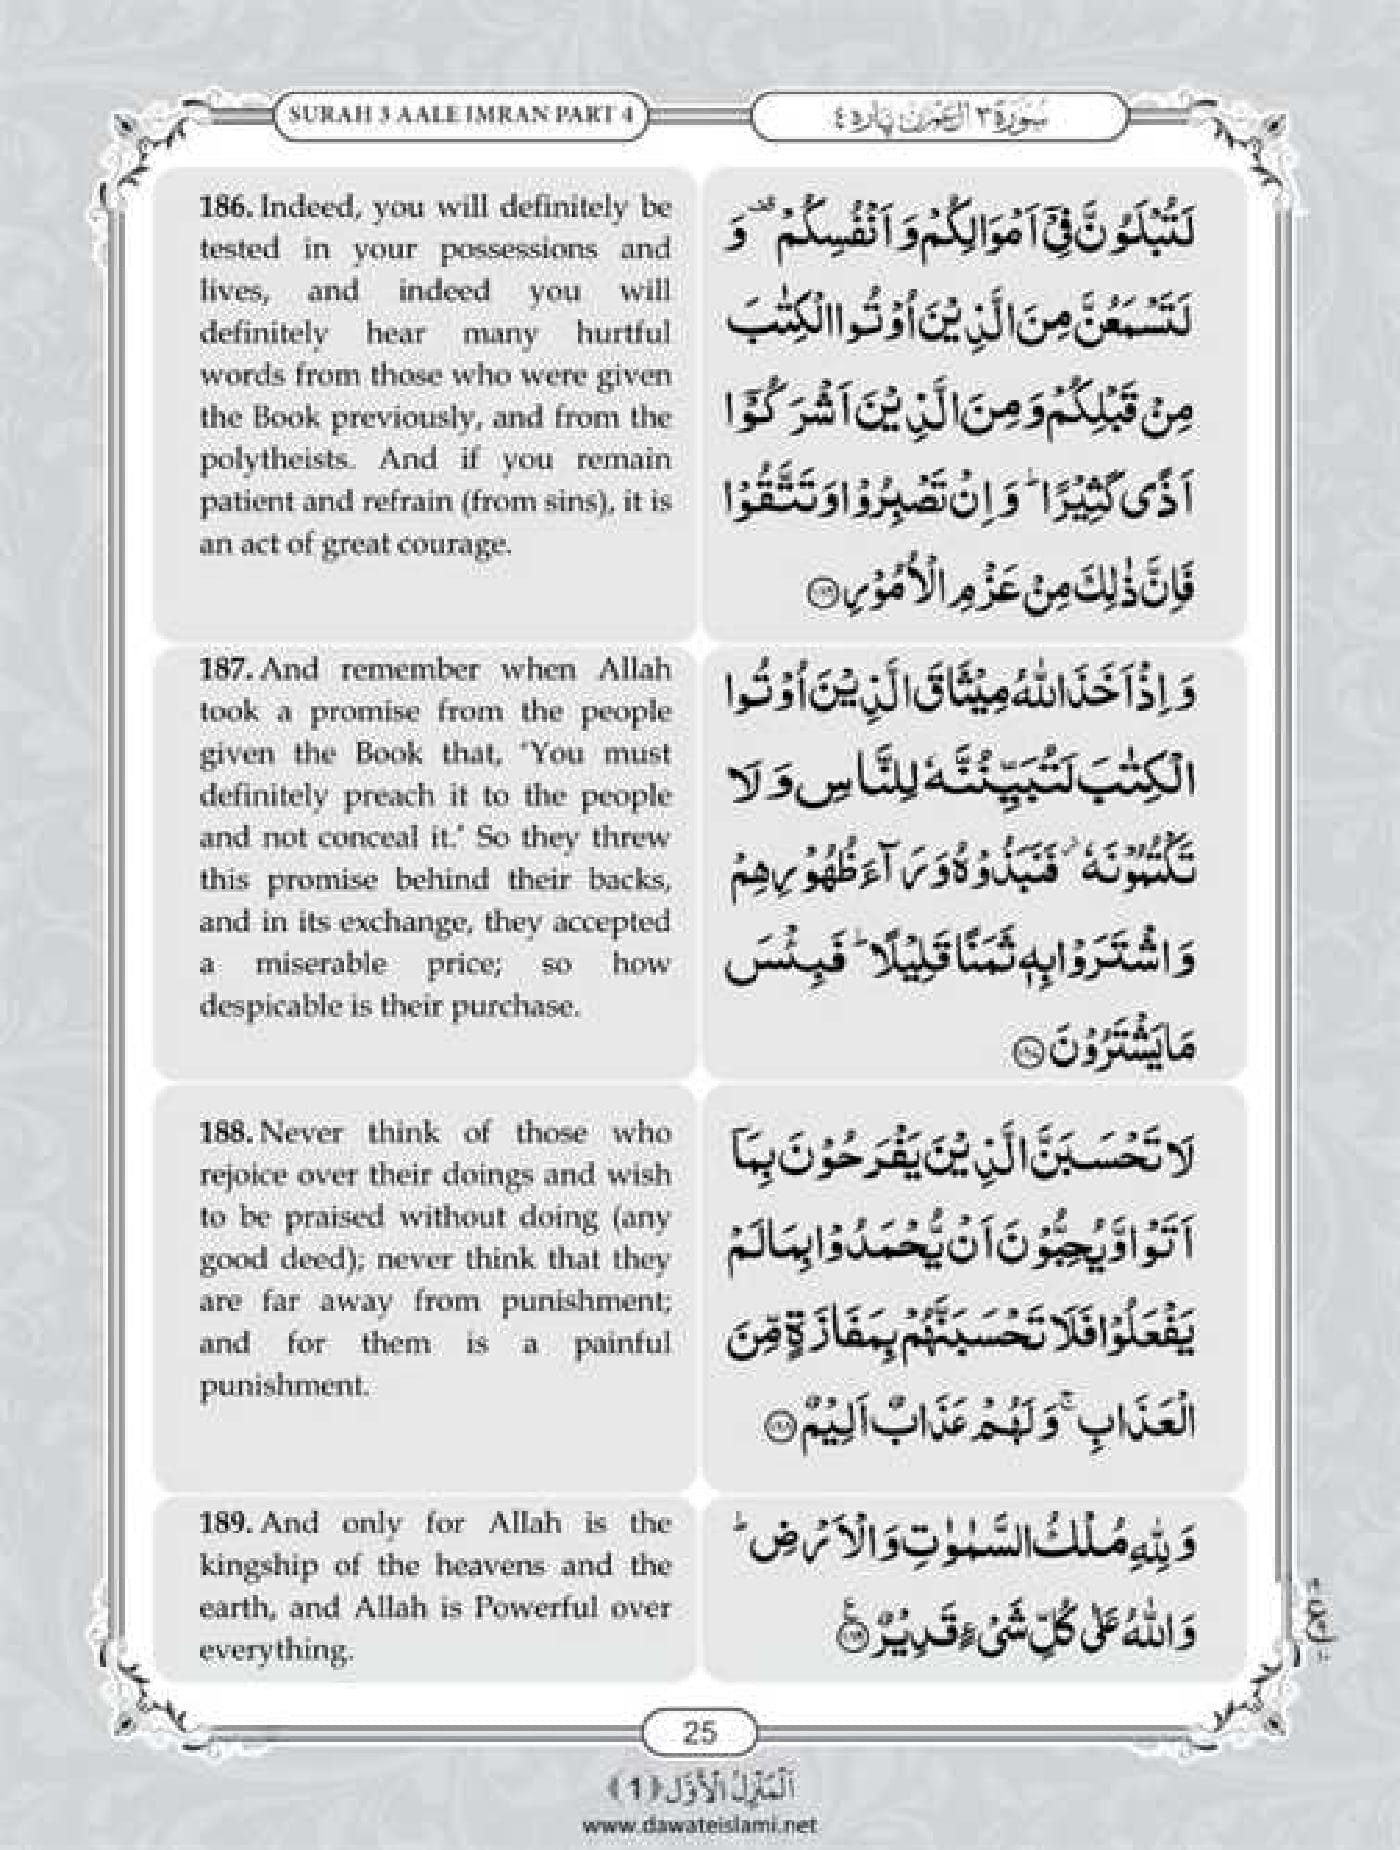 SURAH 3 AALE IMRAN PART 4
سُوْرَةٌ ٣ اٰل عِمْرٰن پارہ ٤
186. Indeed, you will definitely be
tested in your possessions and
lives, and indeed you will
definitely hear many hurtful
words from those who were given
the Book previously, and from the
polytheists. And if you remain
patient and refrain (from sins), it is
an act of great courage.
لَتُبْلَوُنَّ فِیْۤ اَمْوَالِكُمْ وَ اَنْفُسِكُمْ ۫ وَ
لَتَسْمَعُنَّ مِنَ الَّذِیْنَ اُوْتُوا الْكِتٰبَ
مِنْ قَبْلِكُمْ وَ مِنَ الَّذِیْنَ اَشْرَكُوْۤا
اَذًى كَثِیْرًا ؕ وَ اِنْ تَصْبِرُوْا وَ تَتَّقُوْا
فَاِنَّ ذٰلِكَ مِنْ عَزْمِ الْاُمُوْرِ
187. And remember when Allah
took a promise from the people
given the Book that, ‘You must
definitely preach it to the people
and not conceal it.’ So they threw
this promise behind their backs,
and in its exchange, they accepted
a miserable price; so how
despicable is their purchase.
وَ اِذْ اَخَذَ اللّٰهُ مِیْثَاقَ الَّذِیْنَ اُوْتُوا
الْكِتٰبَ لَتُبَیِّنُنَّهٗ لِلنَّاسِ وَ لَا
تَكْتُمُوْنَهٗ ٘ فَنَبَذُوْهُ وَرَآءَ ظُهُوْرِهِمْ
وَ اشْتَرَوْا بِهٖ ثَمَنًا قَلِیْلًا ؕ فَبِئْسَ
مَا یَشْتَرُوْنَ
188. Never think of those who
rejoice over their doings and wish
to be praised without doing (any
good deed); never think that they
are far away from punishment;
and for them is a painful
punishment.
لَا تَحْسَبَنَّ الَّذِیْنَ یَفْرَحُوْنَ بِمَاۤ
اَتَوْا وَّ یُحِبُّوْنَ اَنْ یُّحْمَدُوْا بِمَا لَمْ
یَفْعَلُوْا فَلَا تَحْسَبَنَّهُمْ بِمَفَازَةٍ مِّنَ
الْعَذَابِ ۚ وَ لَهُمْ عَذَابٌ اَلِیْمٌ
189. And only for Allah is the
kingship of the heavens and the
earth, and Allah is Powerful over
everything.
وَ لِلّٰهِ مُلْكُ السَّمٰوٰتِ وَ الْاَرْضِ ؕ
وَ اللّٰهُ عَلٰى كُلِّ شَیْءٍ قَدِیْرٌ
25
اَلْمَنْزِلُ الْاَوَّل ﴿1﴾
www.dawateislami.net